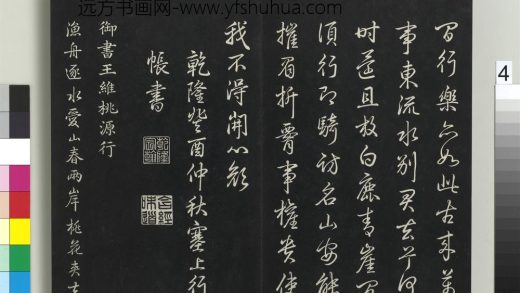 远方书画网- www.yfshuhua.com
間行樂亦如此古来萬
事東流水别君去兮何
时還且放白鹿青崖間
須行即騎訪名山安能
摧眉折腰事權貴使
我不得開心顔
乾隆癸酉仲秋塞上行
帳書
御書王維桃源行
漁舟逐水愛山春兩岸桃花夾去
4